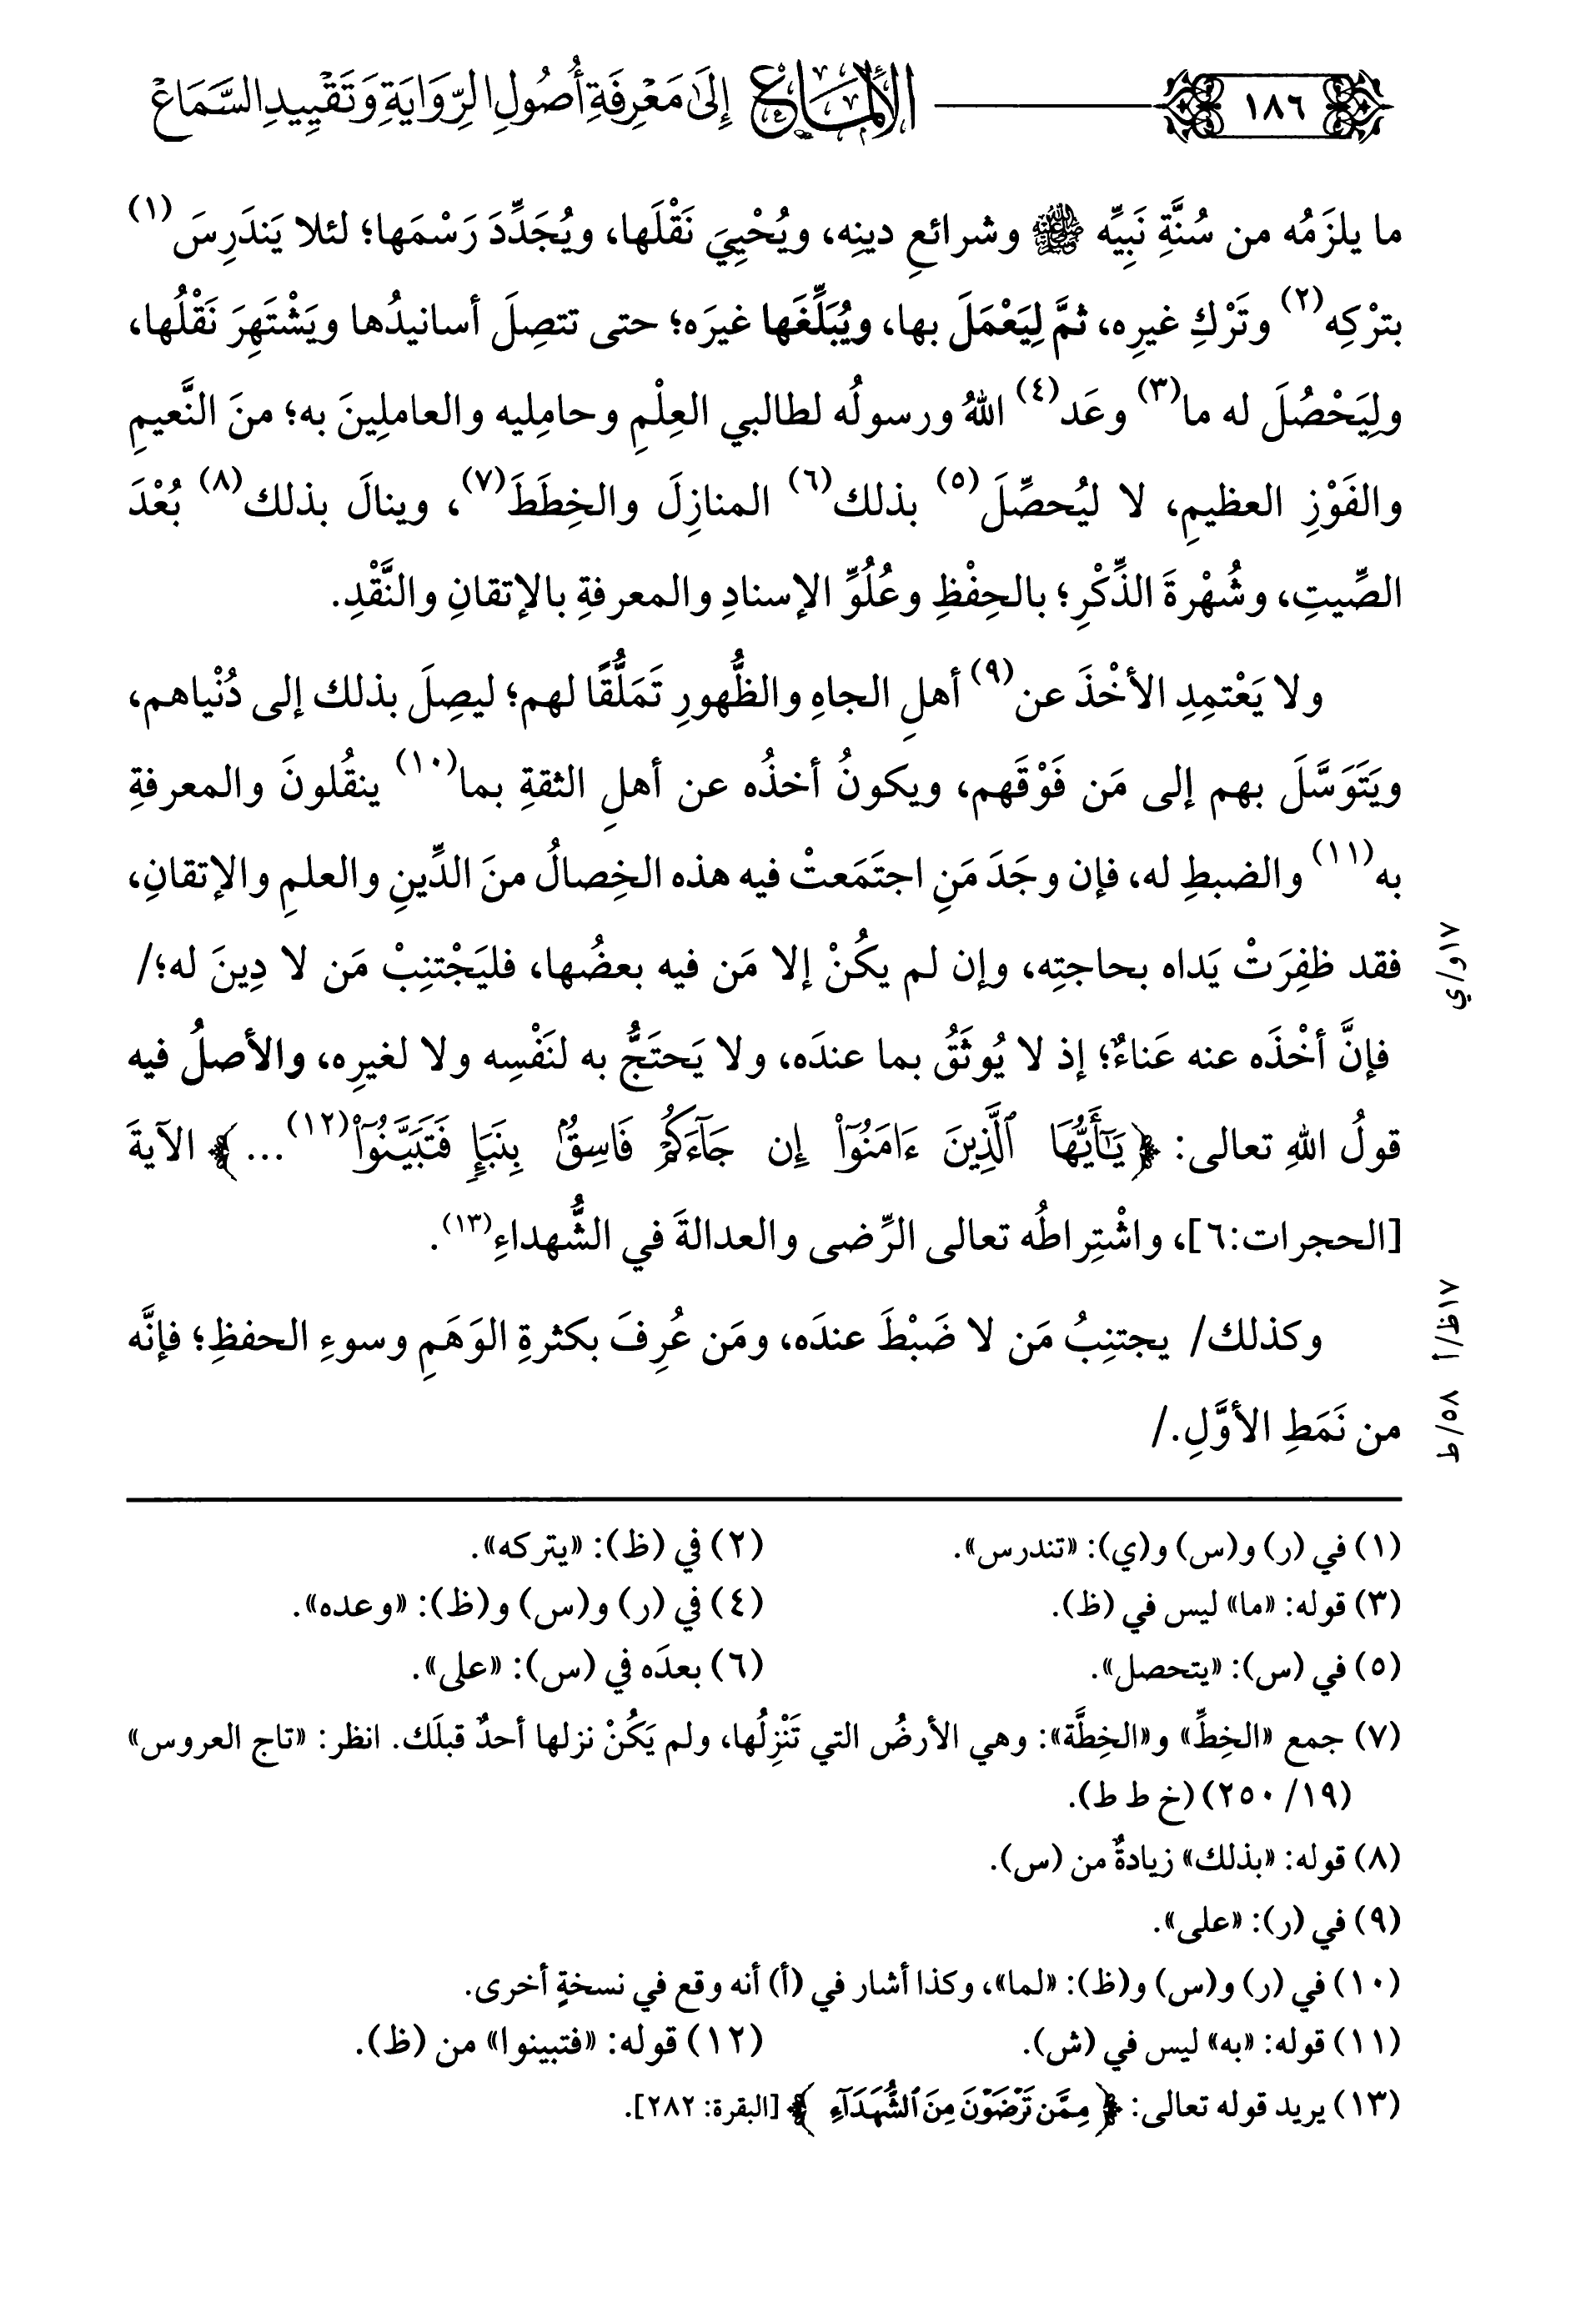 ١٨٦ الإلماع إلى معرفة أصول الرواية وتقييد السماع
ما يلزَمُه من سُنَّةِ نَبِيِّه ﷺ وشرائعِ دينِه، ويُحْيِيَ نَقْلَها، ويُجَدِّدَ رَسْمَها؛ لئلا يَندَرِسَ(١)
بترْكِه(٢) وتَرْكِ غيرِه، ثمَّ لِيَعْمَلَ بها، ويُبَلِّغَها غيرَه؛ حتى تتصِلَ أسانيدُها ويَشْتَهِرَ نَقْلُها،
ولِيَحْصُلَ له ما(٣) وعَد(٤) اللهُ ورسولُه لطالبي العِلْمِ وحامِليه والعاملِينَ به؛ منَ النَّعيمِ
والفَوْزِ العظيمِ، لا ليُحصِّلَ(٥) بذلك(٦) المنازِلَ والخِطَطَ(٧)، وينالَ بذلك(٨) بُعْدَ
الصِّيتِ، وشُهْرةَ الذِّكْرِ؛ بالحِفْظِ وعُلُوِّ الإسنادِ والمعرفةِ بالإتقانِ والنَّقْدِ.
ولا يَعْتمِدِ الأخْذَ عن(٩) أهلِ الجاهِ والظُّهورِ تَمَلُّقًا لهم؛ ليصِلَ بذلك إلى دُنْياهم،
ويَتَوَسَّلَ بهم إلى مَن فَوْقَهم، ويكونُ أخذُه عن أهلِ الثقةِ بما(١٠) ينقُلونَ والمعرفةِ
به(١١) والضبطِ له، فإن وجَدَ مَنِ اجتَمَعتْ فيه هذه الخِصالُ منَ الدِّينِ والعلمِ والإتقانِ،
فقد ظفِرَتْ يَداه بحاجتِه، وإن لم يكُنْ إلا مَن فيه بعضُها، فليَجْتنِبْ مَن لا دِينَ له؛/
١٧و/ي
فإنَّ أخْذَه عنه عَناءٌ؛ إذ لا يُوثَقُ بما عندَه، ولا يَحتَجُّ به لنَفْسِه ولا لغيرِه، والأصلُ فيه
قولُ اللهِ تعالى: ﴿يَٰٓأَيُّهَا ٱلَّذِينَ ءَامَنُوٓا۟ إِن جَآءَكُمْ فَاسِقٌۢ بِنَبَإٍ فَتَبَيَّنُوٓا۟(١٢)...﴾ الآيةَ
[الحجرات:٦]، واشْتِراطُه تعالى الرِّضى والعدالةَ في الشُّهداءِ(١٣).
وكذلك/ يجتنِبُ مَن لا ضَبْطَ عندَه، ومَن عُرِفَ بكثرةِ الوَهَمِ وسوءِ الحفظِ؛ فإنَّه
من نَمَطِ الأوَّلِ./
(١) في (ر) و(س) و(ي): «تندرس».
(٢) في (ظ): «يتركه».
(٣) قوله: «ما» ليس في (ظ).
(٤) في (ر) و(س) و(ظ): «وعده».
(٥) في (س): «يتحصل».
(٦) بعدَه في (س): «على».
(٧) جمع «الخِطِّ» و«الخِطَّة»: وهي الأرضُ التي تَنْزِلُها، ولم يَكُنْ نزلها أحدٌ قبلَك. انظر: «تاج العروس»
(١٩/ ٢٥٠) (خ ط ط).
(٨) قوله: «بذلك» زيادةٌ من (س).
(٩) في (ر): «على».
(١٠) في (ر) و(س) و(ظ): «لما»، وكذا أشار في (أ) أنه وقع في نسخةٍ أخرى.
(١١) قوله: «به» ليس في (ش).
(١٢) قوله: «فتبينوا» من (ظ).
(١٣) يريد قوله تعالى: ﴿مِمَّن تَرْضَوْنَ مِنَ ٱلشُّهَدَآءِ﴾ [البقرة: ٢٨٢].